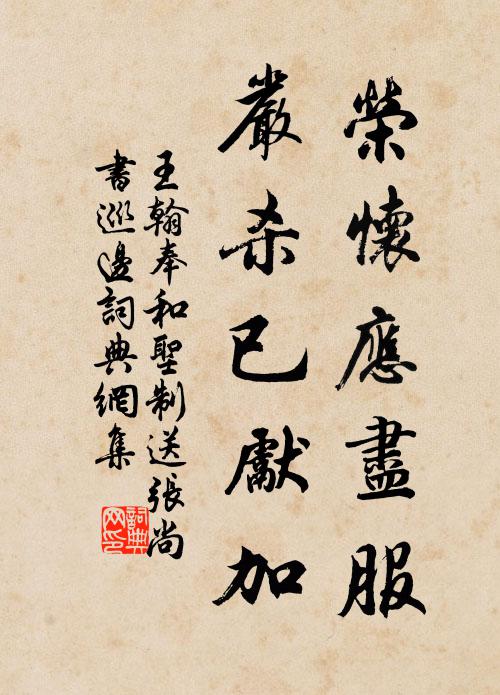 榮懷應盡服
嚴杀已獻加
王翰奉和聖制送張尚
書巡邊詞典網集
詞典
网印